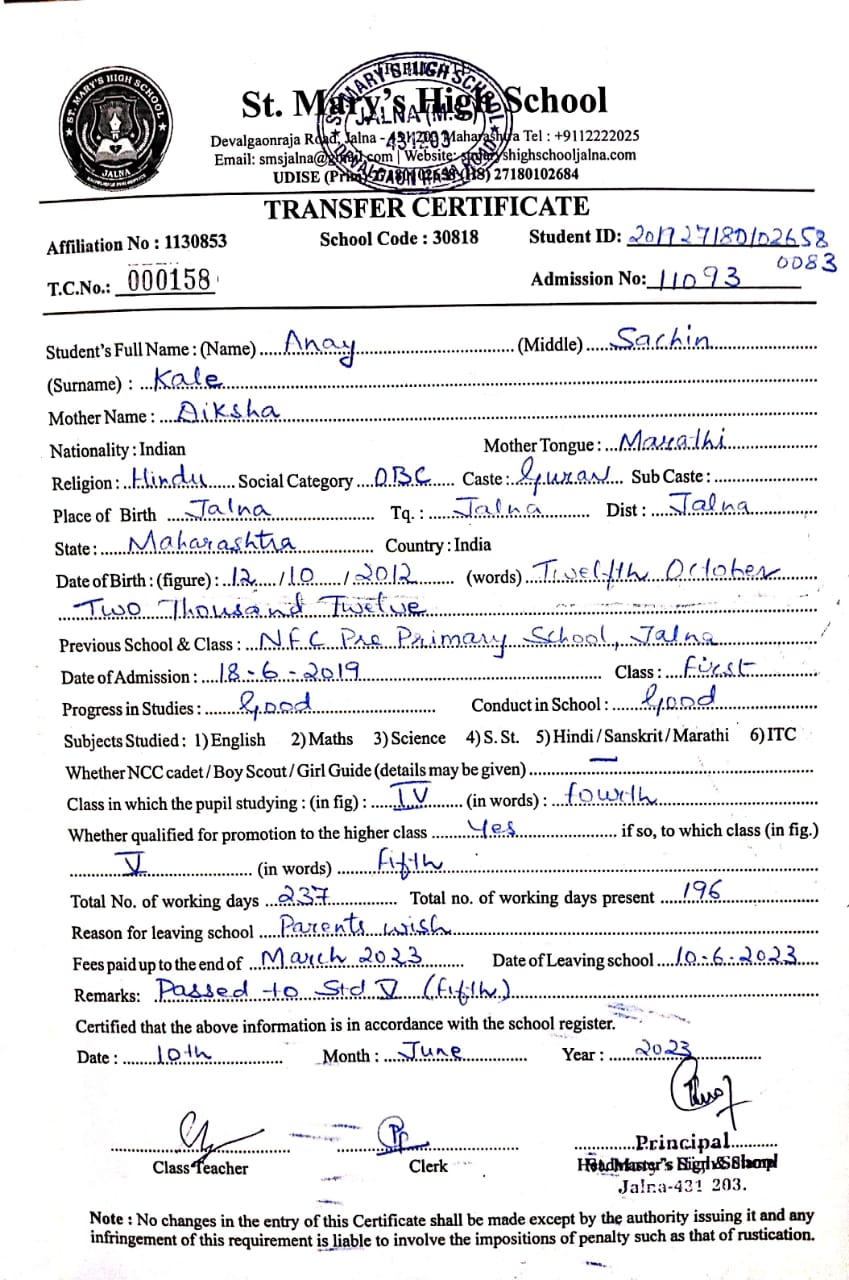 ST. MARY'S HIGH SCHOOL
JALNA
St. Mary's High School
ST. MARY'S HIGH SCHOOL
JALNA (M.S.)
431203
DEVALGAON RAJA ROAD
Devalgaonraja Road, Jalna - 431 203 Maharashtra Tel : +9112222025
Email: smsjalna@gmail.com | Website: stmaryshighschooljalna.com
UDISE (Pri.) 27180102658 (HS) 27180102684
TRANSFER CERTIFICATE
Affiliation No : 1130853 School Code : 30818 Student ID: 201727180102658
0083
T.C.No.: 000158 Admission No: 11093
Student's Full Name : (Name) Anay (Middle) Sachin
(Surname) : Kale
Mother Name : Diksha
Nationality : Indian Mother Tongue : Marathi
Religion : Hindu Social Category OBC Caste : Gurav Sub Caste :
Place of Birth Jalna Tq. : Jalna Dist : Jalna
State : Maharashtra Country : India
Date of Birth : (figure) : 12 / 10 / 2012 (words) Twelfth October
Two Thousand Twelve
Previous School & Class : NFC Pre Primary School, Jalna
Date of Admission : 18-6-2019 Class : First
Progress in Studies : Good Conduct in School : Good
Subjects Studied : 1) English 2) Maths 3) Science 4) S. St. 5) Hindi / Sanskrit / Marathi 6) ITC
Whether NCC cadet / Boy Scout / Girl Guide (details may be given) —
Class in which the pupil studying : (in fig) : IV (in words) : fourth
Whether qualified for promotion to the higher class Yes if so, to which class (in fig.)
V (in words) fifth
Total No. of working days 237 Total no. of working days present 196
Reason for leaving school Parents wish
Fees paid up to the end of March 2023 Date of Leaving school 10-6-2023
Remarks: Passed to Std V (fifth.)
Certified that the above information is in accordance with the school register.
Date : 10th Month : June Year : 2023
Class Teacher Clerk Principal
Jalna-431 203.
Note : No changes in the entry of this Certificate shall be made except by the authority issuing it and any
infringement of this requirement is liable to involve the impositions of penalty such as that of rustication.